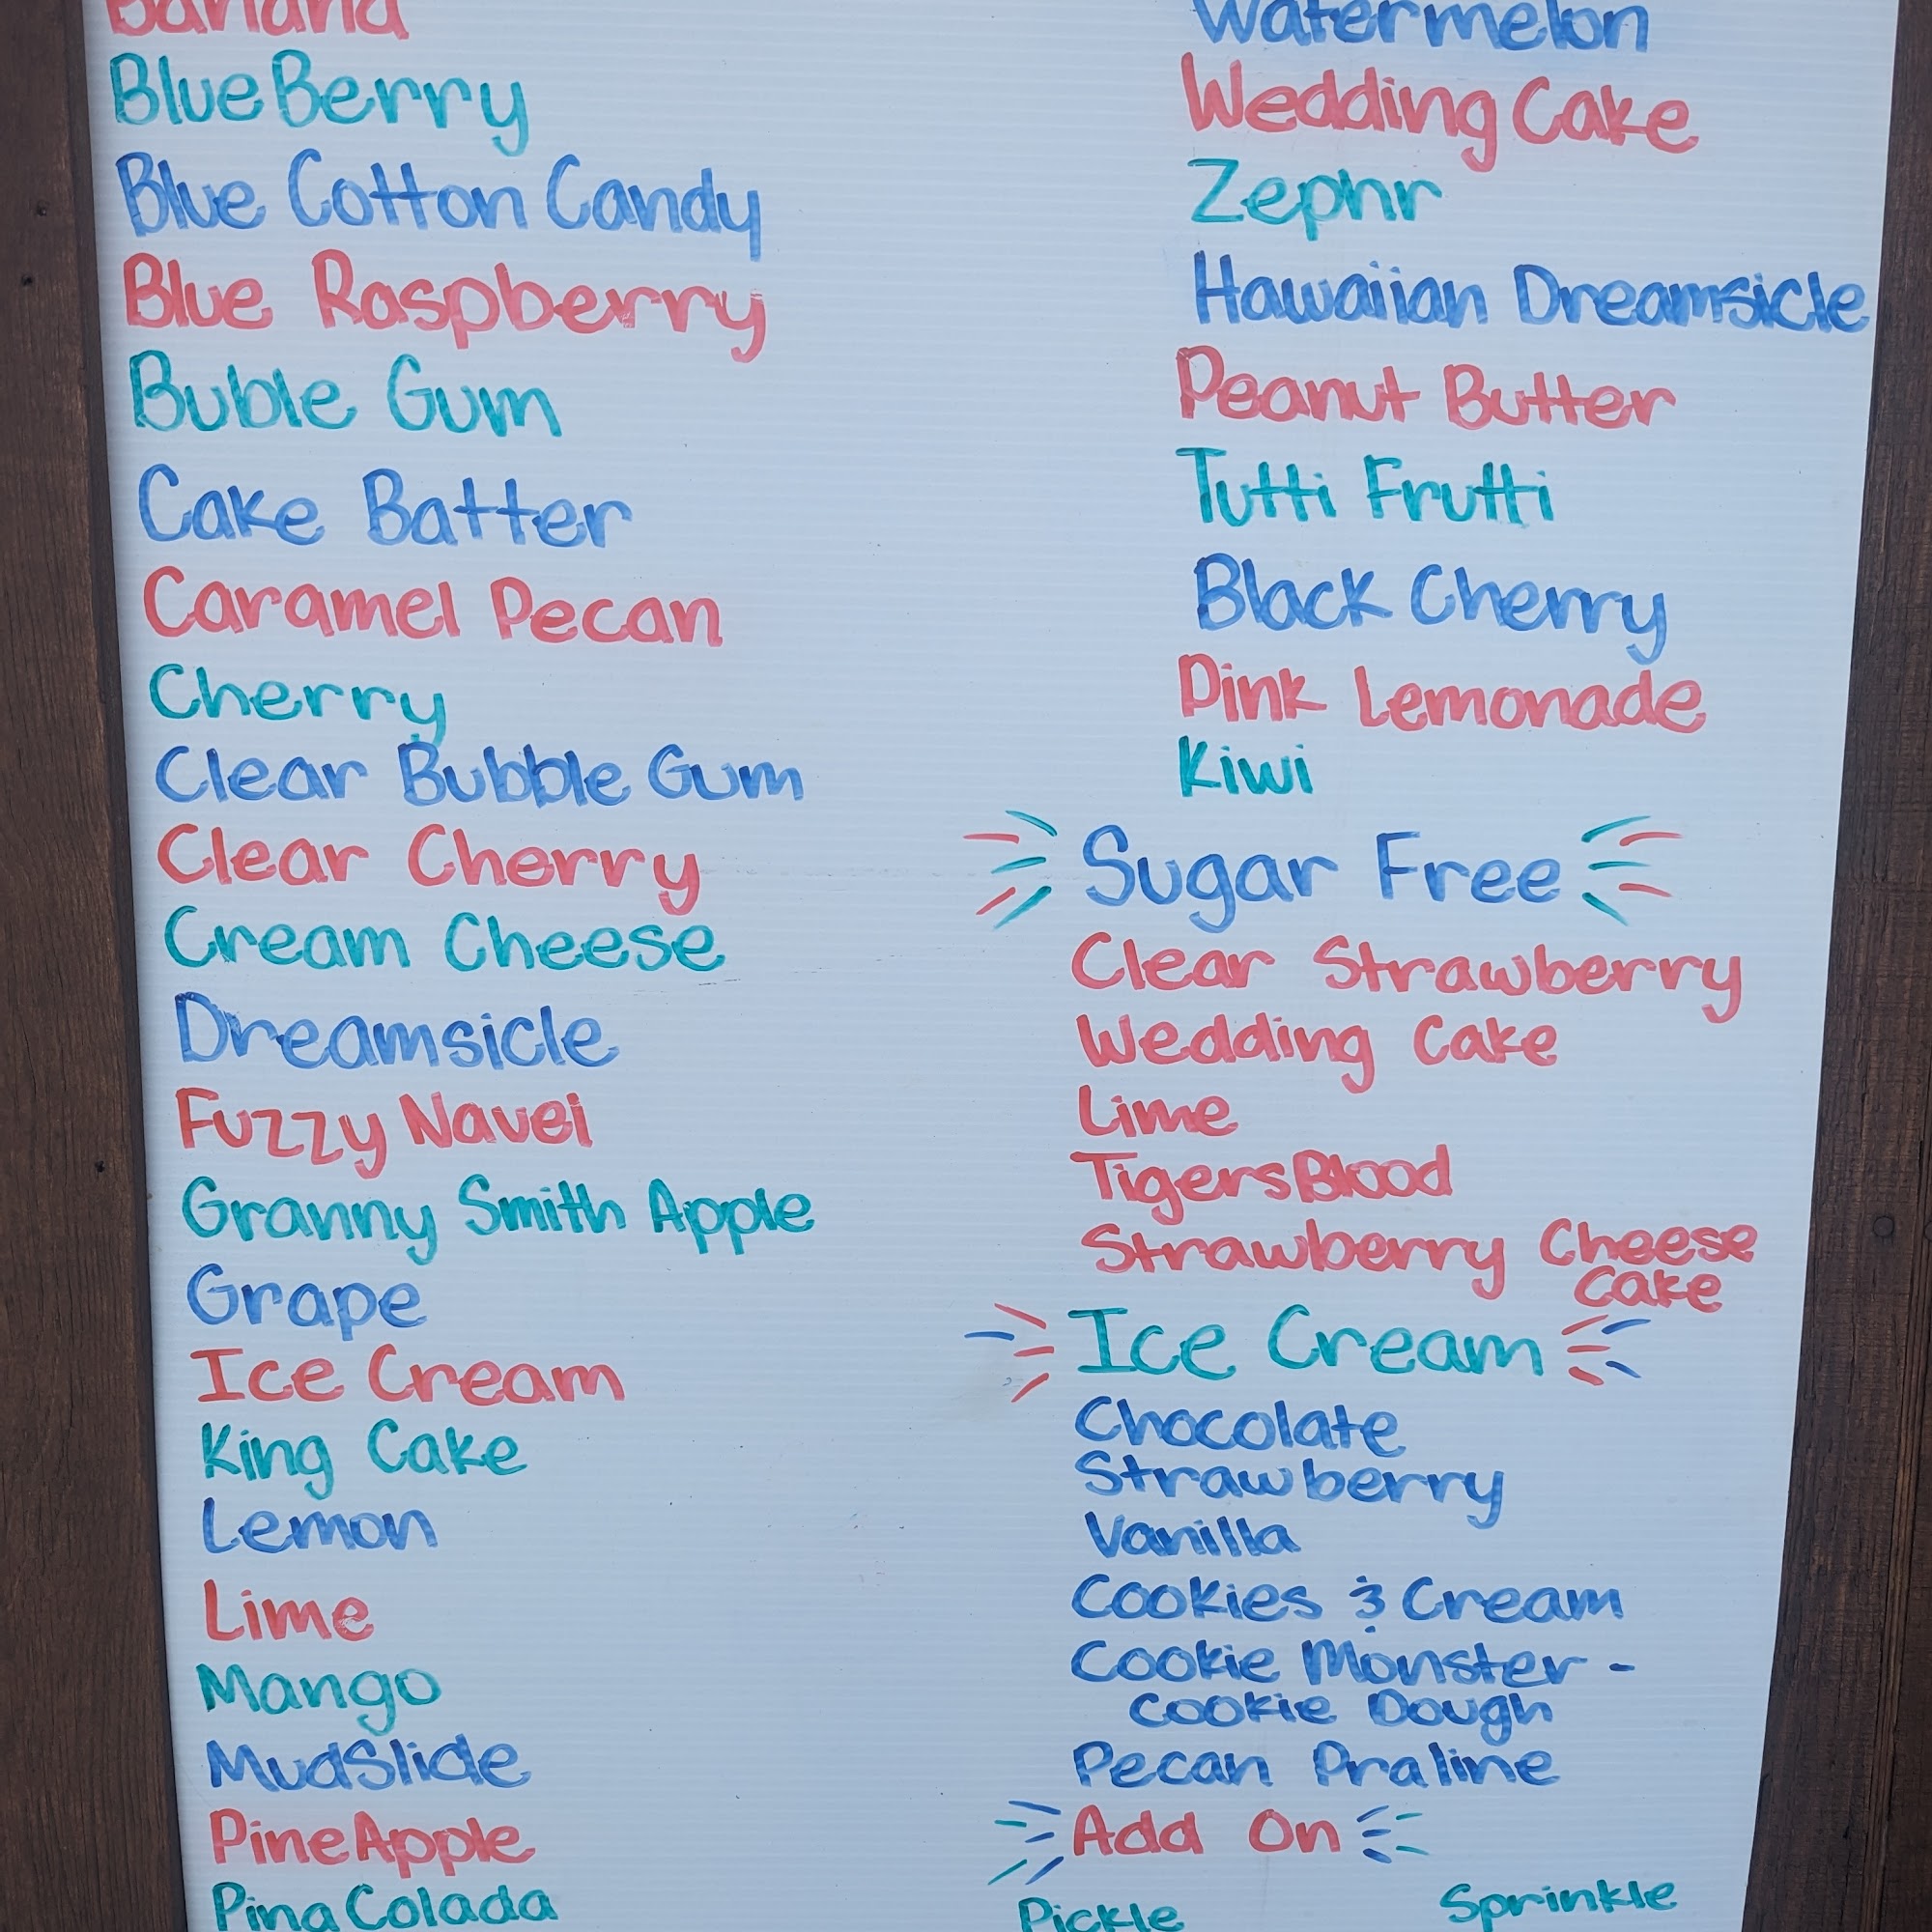 Banana
BlueBerry
Blue Cotton Candy
Blue Raspberry
Buble Gum
Cake Batter
Caramel Pecan
Cherry
Clear Bubble Gum
Clear Cherry
Cream Cheese
Dreamsicle
Fuzzy Navel
Granny Smith Apple
Grape
Ice Cream
King Cake
Lemon
Lime
Mango
MudSlide
PineApple
Pina Colada
Watermelon
Wedding Cake
Zephr
Hawaiian Dreamsicle
Peanut Butter
Tutti Frutti
Black Cherry
Pink Lemonade
Kiwi
Sugar Free
Clear Strawberry
Wedding Cake
Lime
TigersBlood
Strawberry Cheese
Cake
Ice Cream
Chocolate
Strawberry
Vanilla
Cookies & Cream
Cookie Monster -
Cookie Dough
Pecan Praline
Add On
Pickle Sprinkle